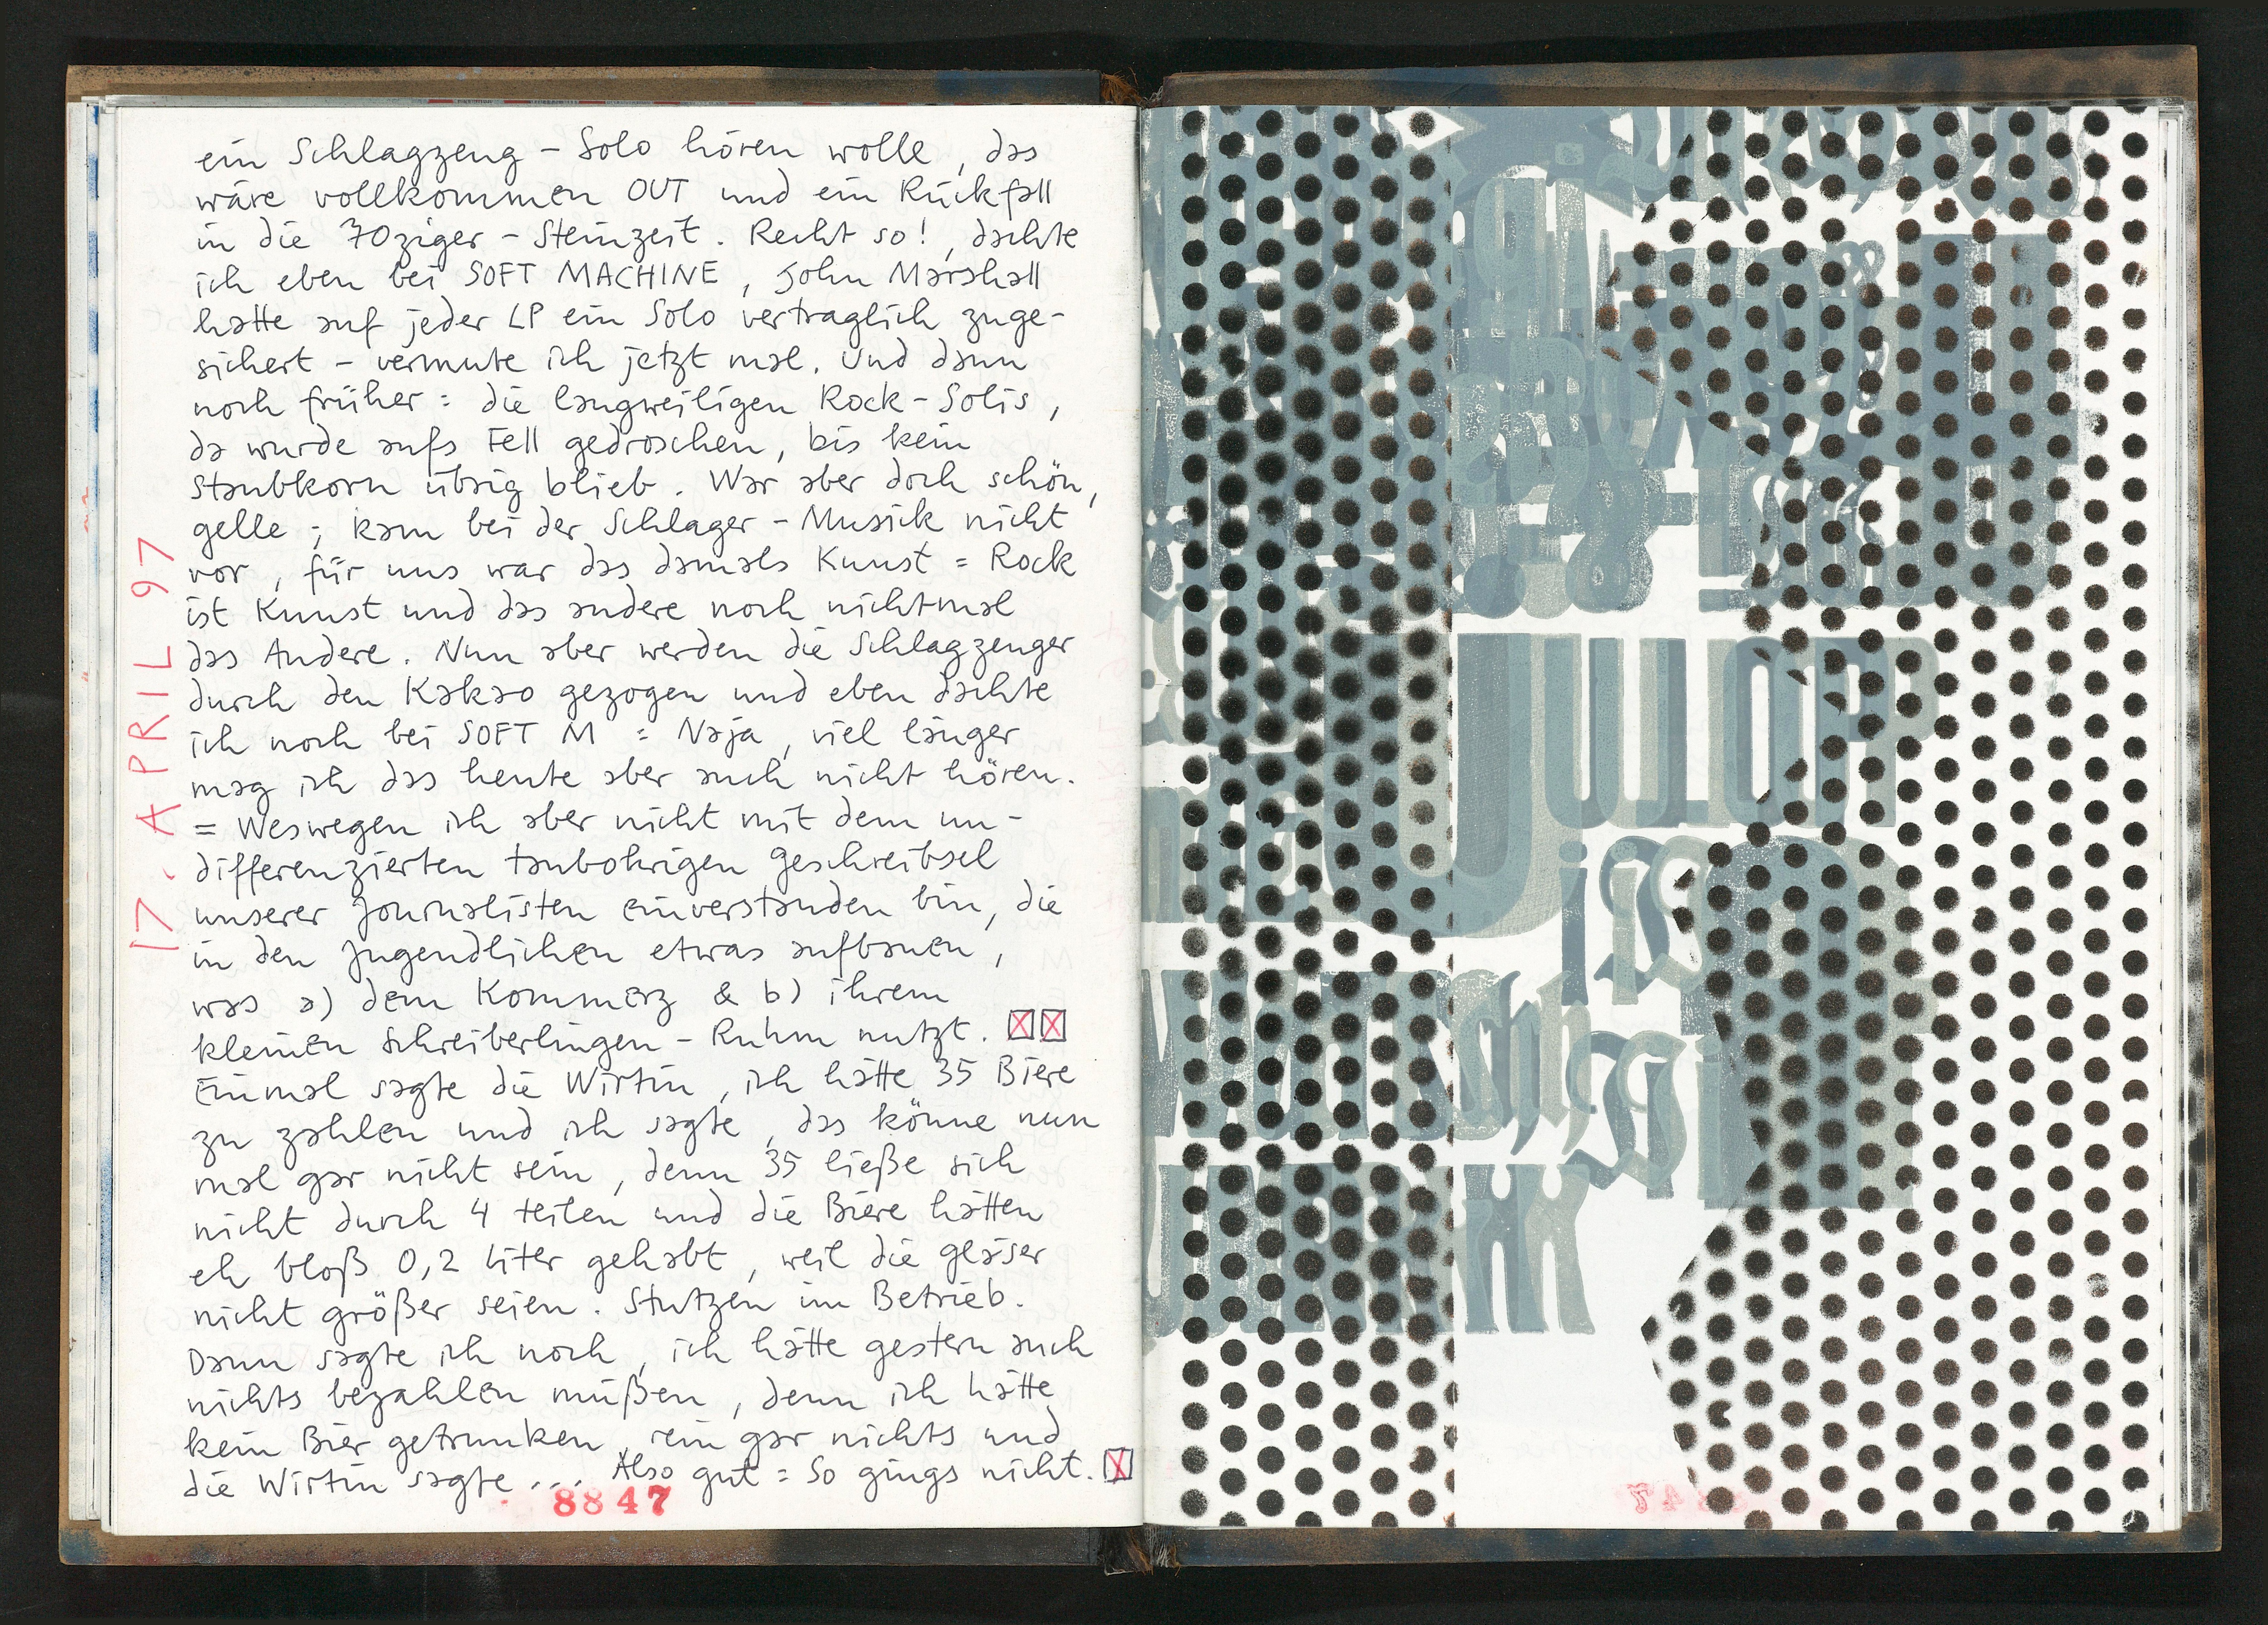 ein Schlagzeug - Solo hören wolle, das
wäre vollkommen OUT und ein Rückfall
in die 70ziger - Steinzeit. Recht so!, dachte
ich eben bei SOFT MACHINE, John Marshall
hatte auf jeder LP ein Solo vertraglich zuge-
sichert - vermute ich jetzt mal. Und dann
noch früher = die langweiligen Rock - Solis,
da wurde aufs Fell gedroschen, bis kein
Staubkorn übrig blieb. War aber doch schön,
gelle ; kam bei der Schlager - Musick nicht
vor, für uns war das damals Kunst = Rock
ist Kunst und das andere noch nichtmal
das Andere. Nun aber werden die Schlagzeuger
durch den Kakao gezogen und eben dachte
ich noch bei SOFT M = Naja, viel länger
mag ich das heute aber auch nicht hören.
= Weswegen ich aber nicht mit dem un-
differenzierten taubohrigen Geschreibsel
unserer Journalisten einverstanden bin, die
in den Jugendlichen etwas aufbauen,
was a) dem Kommerz & b) ihrem
kleinen Schreiberlingen - Ruhm nutzt.
Einmal sagte die Wirtin, ich hätte 35 Biere
zu zahlen und ich sagte, das könne nun
mal gar nicht sein, denn 35 ließe sich
nicht durch 4 teilen und die Biere hätten
eh bloß 0,2 Liter gehabt, weil die Gläser
nicht größer seien. Stutzen im Betrieb.
Dann sagte ich noch, ich hätte gestern auch
nichts bezahlen müßen, denn ich hätte
kein Bier getrunken, rein gar nichts und
die Wirtin sagte .... Also gut = So gings nicht.
17. APRIL 97
8847